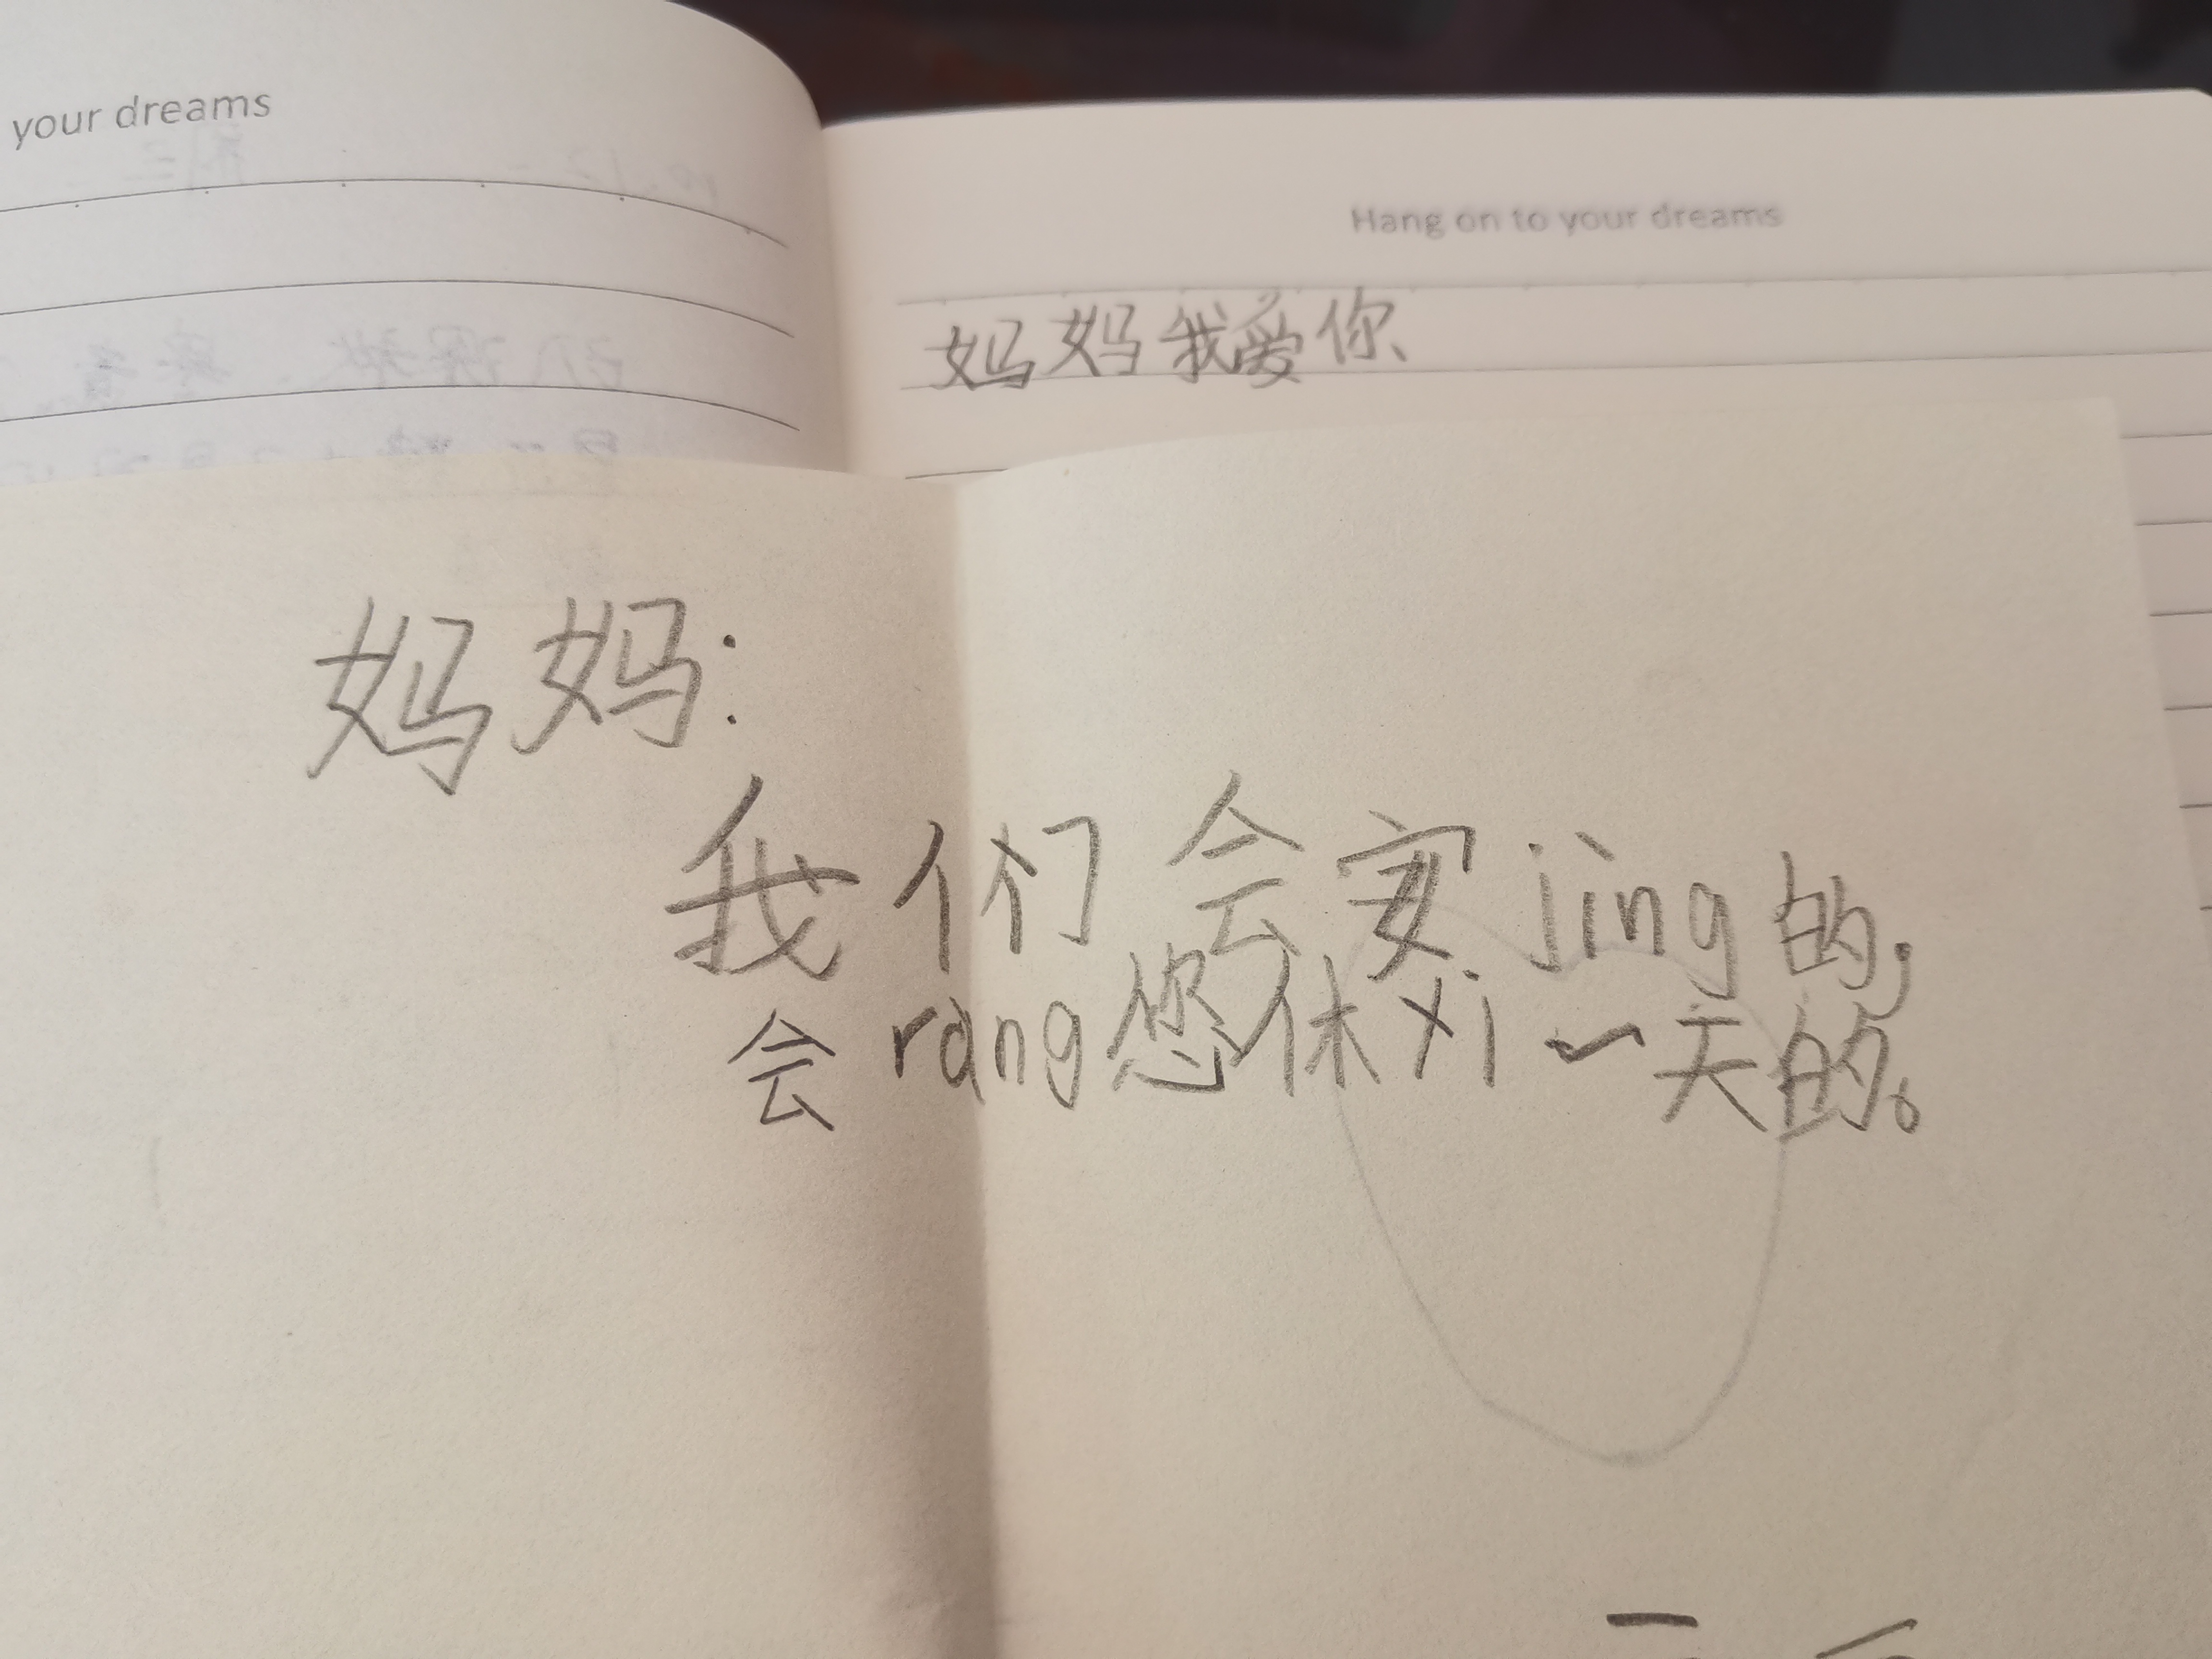 your dreams
Hang on to your dreams
妈妈我爱你
妈妈:
我们会安jing的,
会rang您休xi一天的。